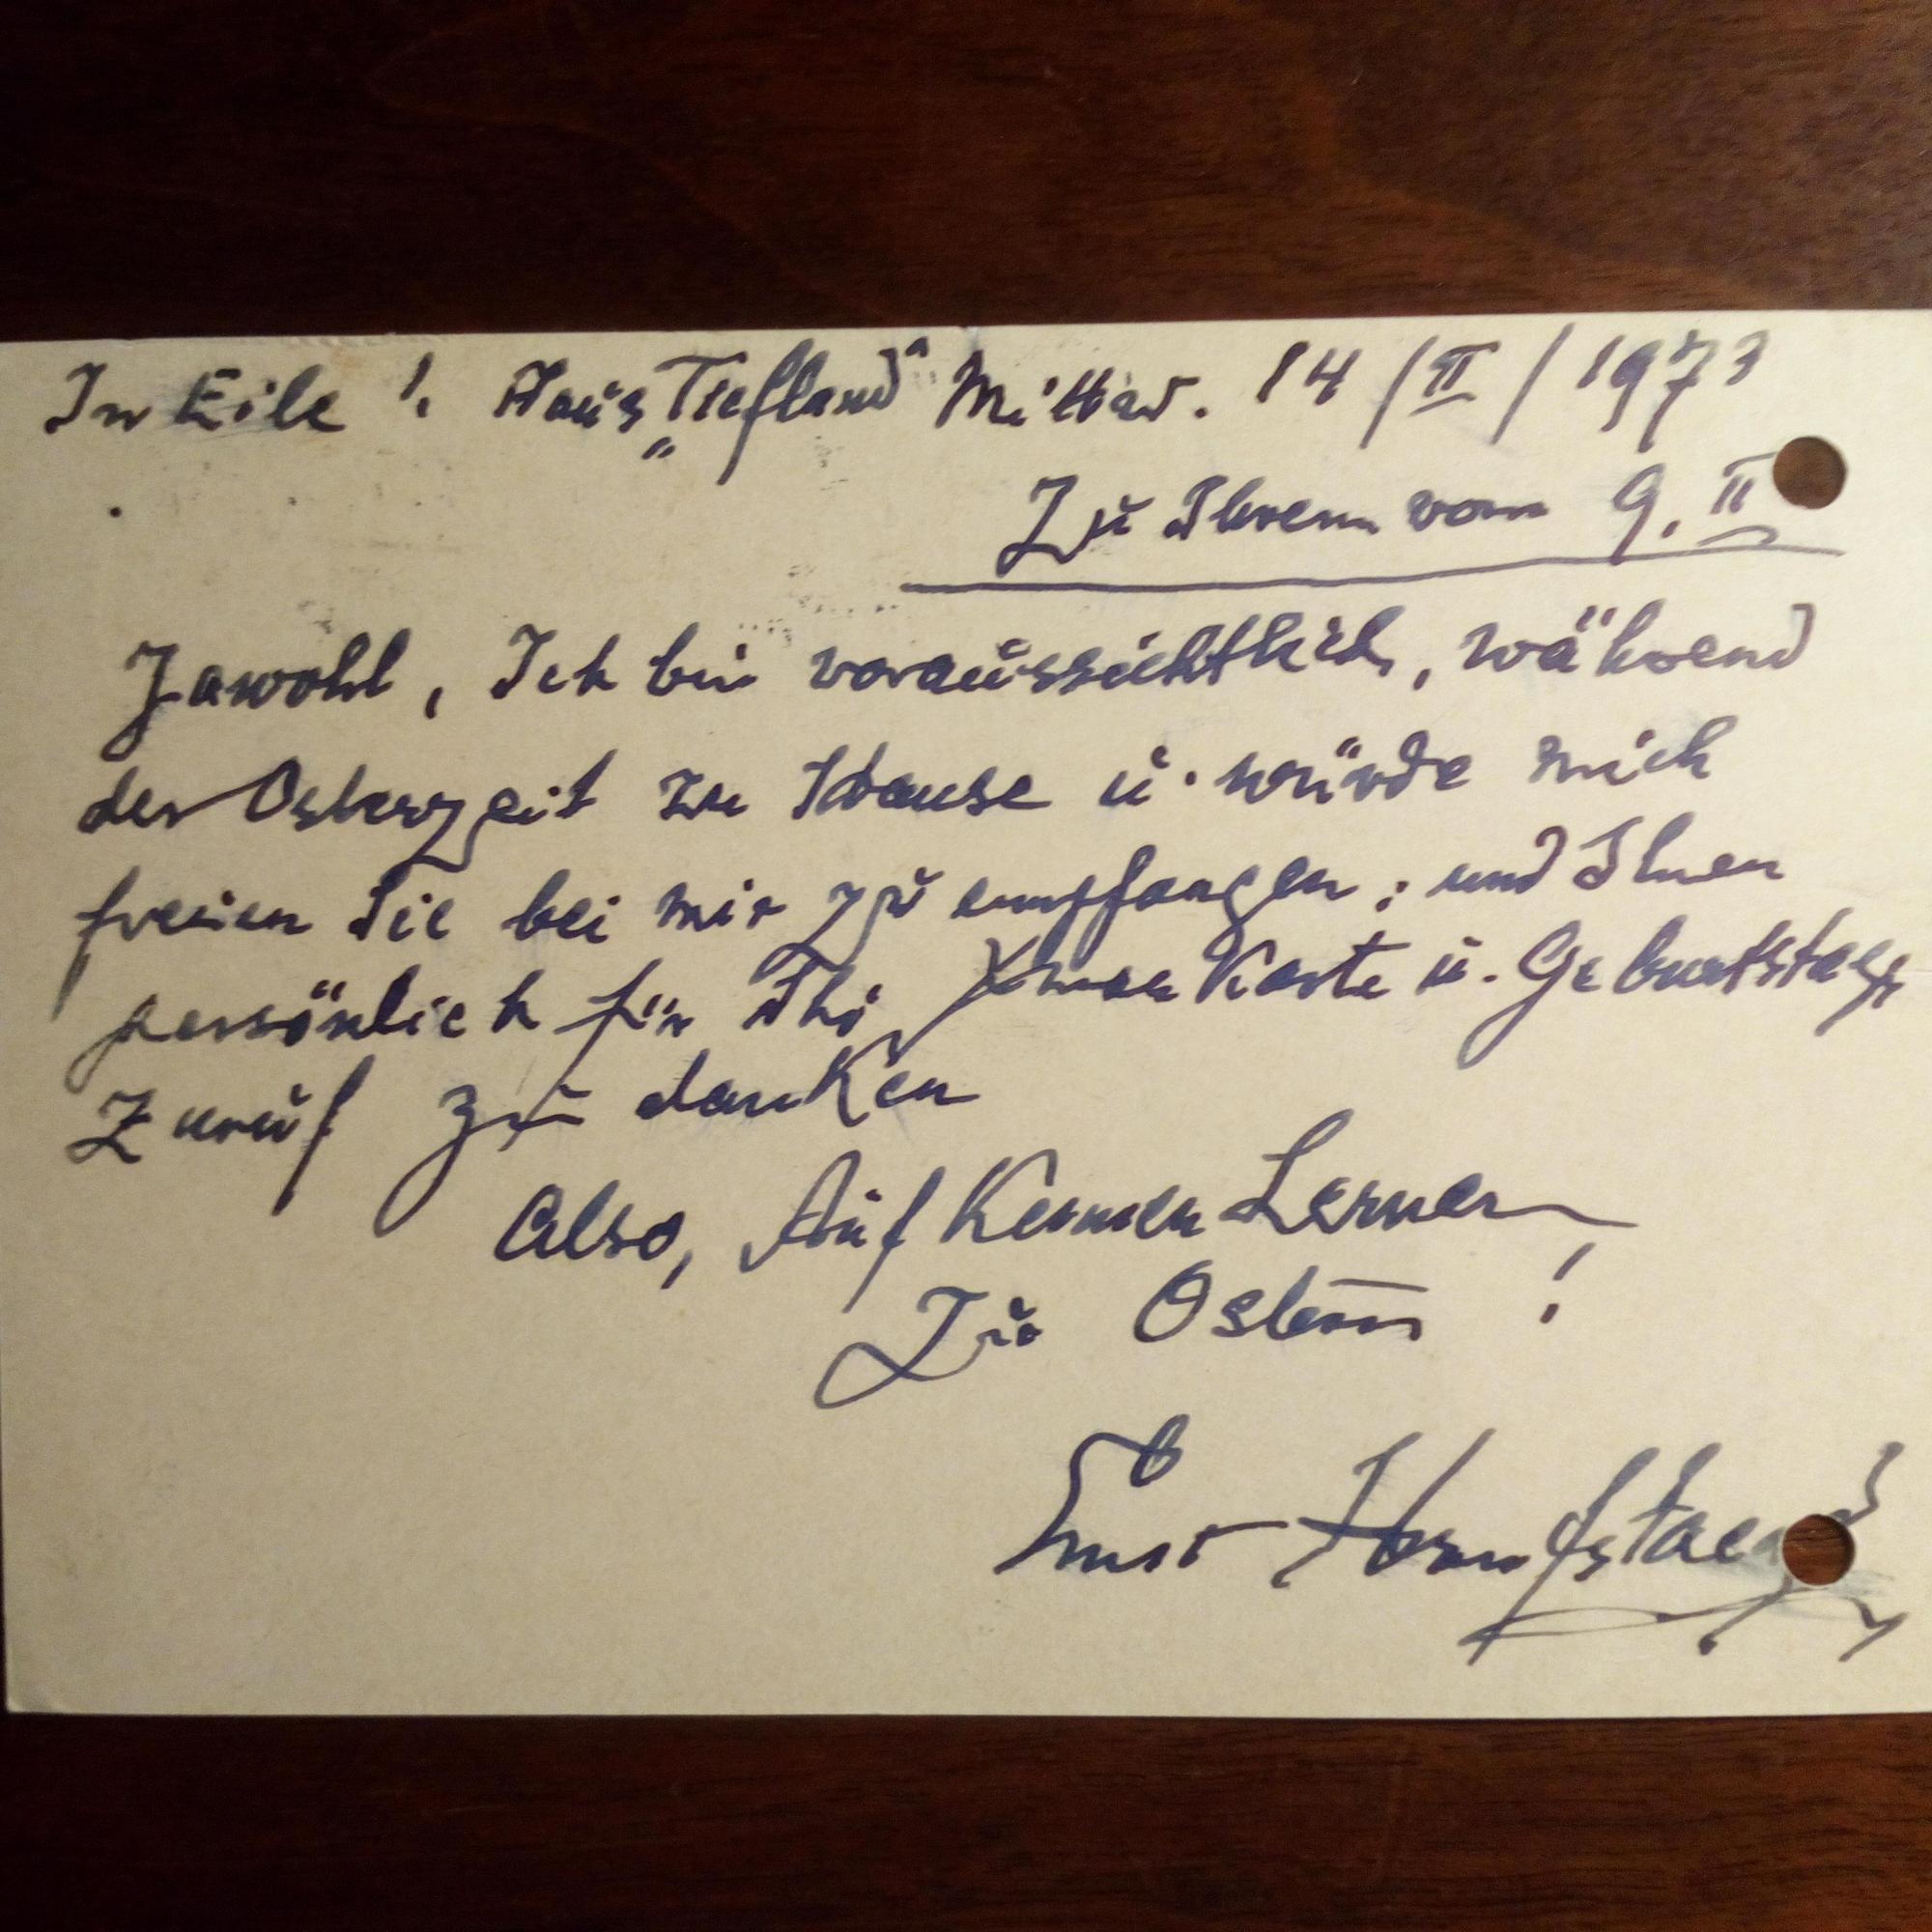 In Eile! Haus „Tiefland“ Mittw. 14/II/1973
Zu Ihrem vom 9. II
Jawohl, Ich bin voraussichtlich, während
der Osterzeit zu Hause u. würde mich
freuen Sie bei mir zu empfangen; und Ihnen
persönlich für Ihr Karte u. Geburtstags
Zuruf zu danken
Also, Auf Kennen Lernen
Zu Ostern!
Ernst Hanfstaengl